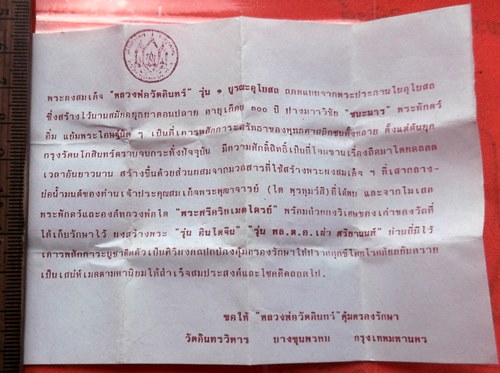 พระผงสมเด็จ "หลวงพ่อวัดอินทร์" รุ่น ๑ บูรณะอุโบสถ ถอดแบบจากพระประธานในอุโบสถ
ซึ่งสร้างไว้นานสมัยอยุธยาตอนปลาย อายุเกือบ ๓๐๐ ปี ปางมารวิชัย "ชนะมาร" พระพักตร์
อิ่ม แย้มพระโอษฐ์นิด ๆ เป็นที่เคารพสักการะศรัทธาของพุทธศาสนิกชนทั้งหลาย ตั้งแต่ต้นยุค
กรุงรัตนโกสินทร์ตราบจนกระทั่งปัจจุบัน มีความศักดิ์สิทธิ์เป็นที่โจษขานเลื่องลือมาโดยตลอด
เวลาอันยาวนาน สร้างขึ้นด้วยส่วนผสมจากมวลสารที่ใช้สร้างพระผงสมเด็จ ฯ ที่เสากลาง-
บ่อน้ำมนต์ของท่านเจ้าประคุณสมเด็จพระพุฒาจารย์ (โต พรหฺมรํสี) ที่ได้พบ และจากในเศียร
พระพักตร์และองค์หลวงพ่อโต "พระศรีอริยเมตไตรย์" พร้อมด้วยผงวิเศษของเก่าของวัดที่
ได้เก็บรักษาไว้ ผงสร้างพระ "รุ่น อินโดจีน" "รุ่น พล.ต.อ.เผ่า ศรียานนท์" ท่านที่มีไว้
เคารพสักการะบูชาติดตัวเป็นศิริมงคลปกป้องคุ้มครองรักษาให้ปราศทุกข์โศกโรคภัยอันตราย
เป็นเสน่ห์เมตตามหานิยมให้สำเร็จสมประสงค์และโชคดีตลอดไป.
ขอให้ "หลวงพ่อวัดอินทร์" คุ้มครองรักษา
วัดอินทรวิหาร บางขุนพรหม กรุงเทพมหานคร